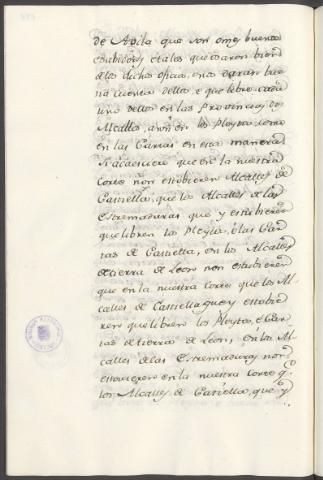 de Avila que son omes buenos
esabidores etales que usaron bien
delos dichos oficios, enos daran bue
na cuenta dellos, e que libre cada
uno dellos en las Provincias do
Alcalles, assi en los Pleytos como
en las Cartas en esta manera.
Si acaesciere que en la nuestra
Corte non estobieren Alcalles de
Castiella, que los Alcalles de las
Estremaduras que y estubieren
que libren los Pleytos, e las Car
tas de Castiella, en los Alcalles
detierra de Leon non estubieren
que en la nuestra Corte que los Al
calles de Castiella que y estobie
ren que libren los Pleytos, e Car
tas detierra de Leon, en los Al
calles delas Estremaduras non
estovieren en la nuestra Corte q.e
los Alcalles de Castiella, que y